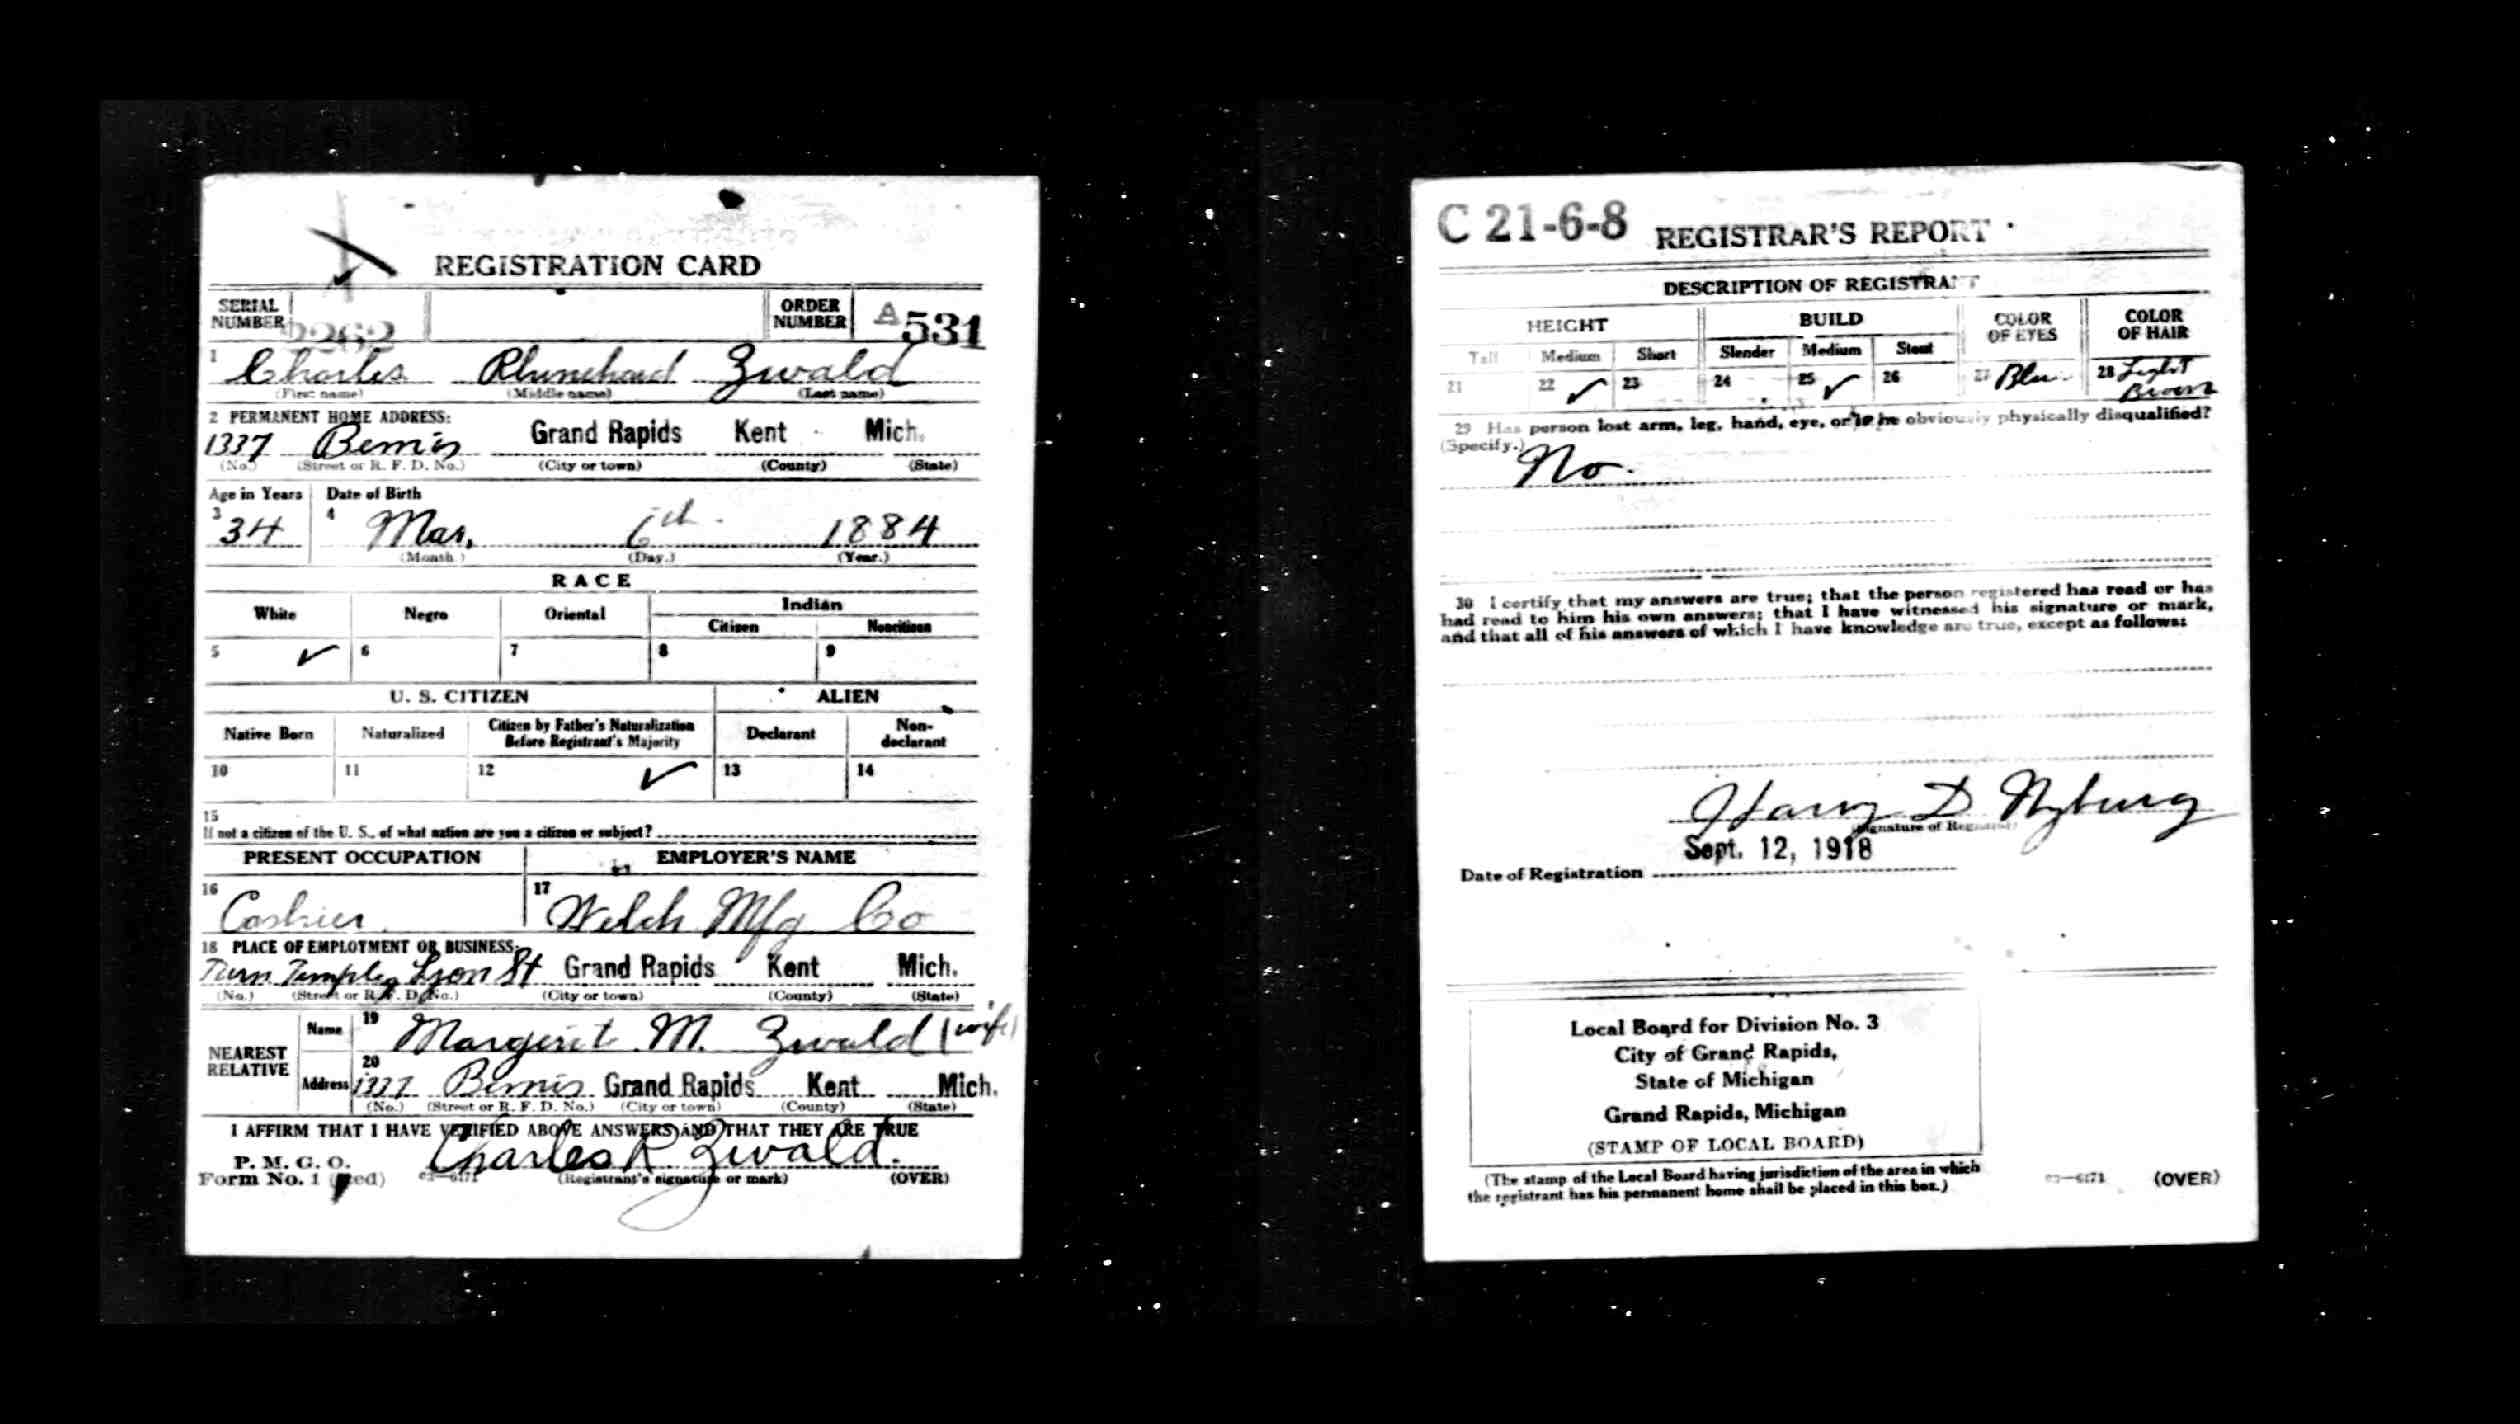 REGISTRATION CARD
SERIAL NUMBER 2262 ORDER NUMBER A 531
1 Charles Zwald
(First name) (Middle name) (Last name)
2 PERMANENT HOME ADDRESS:
1337 Bemis Grand Rapids Kent Mich.
(No.) (Street or R. F. D. No.) (City or town) (County) (State)
Age in Years Date of Birth
3 34 4 Mar. 6th 1884
(Month.) (Day.) (Year.)
RACE
White Negro Oriental Indian
Citizen Noncitizen
5 ✓ 6 7 8 9
U. S. CITIZEN ALIEN
Native Born Naturalized Citizen by Father's Naturalization Before Registrant's Majority Declarant Non-declarant
10 11 12 ✓ 13 14
15
If not a citizen of the U. S., of what nation are you a citizen or subject?
PRESENT OCCUPATION EMPLOYER'S NAME
16 Cashier 17 Welch Mfg Co
18 PLACE OF EMPLOYMENT OR BUSINESS:
Lyon St Grand Rapids Kent Mich.
(No.) (Street or R. F. D. No.) (City or town) (County) (State)
NEAREST RELATIVE Name 19 Margerit M. Zwald (wife)
Address 20 1337 Bemis Grand Rapids Kent Mich.
(No.) (Street or R. F. D. No.) (City or town) (County) (State)
I AFFIRM THAT I HAVE VERIFIED ABOVE ANSWERS AND THAT THEY ARE TRUE
P. M. G. O.
Form No. 1 (Red) 03—6171 Charles R Zwald.
(Registrant's signature or mark) (OVER)
C 21-6-8 REGISTRAR'S REPORT
DESCRIPTION OF REGISTRANT
HEIGHT BUILD COLOR OF EYES COLOR OF HAIR
Tall Medium Short Slender Medium Stout
21 22 ✓ 23 24 25 ✓ 26 27 Blu 28 Light Brown
29 Has person lost arm, leg, hand, eye, or is he obviously physically disqualified?
(Specify.) No.
30 I certify that my answers are true; that the person registered has read or has
had read to him his own answers; that I have witnessed his signature or mark,
and that all of his answers of which I have knowledge are true, except as follows:
Harry D Nyburg
(Signature of Registrar)
Date of Registration Sept. 12, 1918
Local Board for Division No. 3
City of Grand Rapids,
State of Michigan
Grand Rapids, Michigan
(STAMP OF LOCAL BOARD)
(The stamp of the Local Board having jurisdiction of the area in which
the registrant has his permanent home shall be placed in this box.)
03—6171 (OVER)